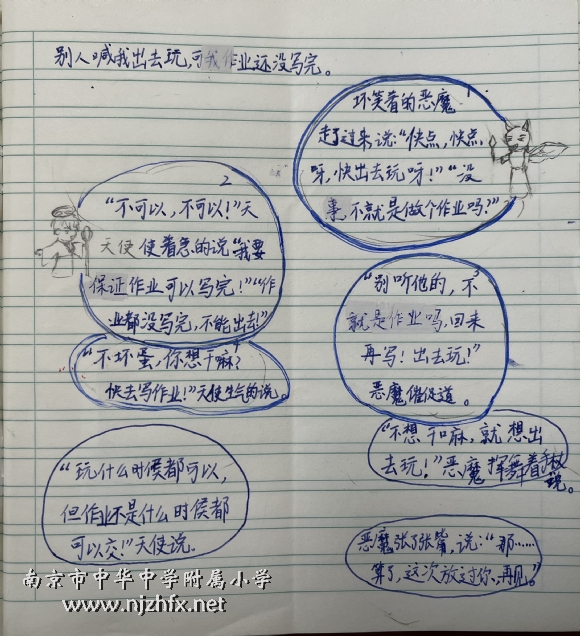 别人喊我出去玩,可我作业还没写完。
坏笑着的恶魔
走了过来,说:“快点,快点
呀,快出去玩呀!”“没
事,不就是做个作业吗?”
2
“不可以,不可以!”天
天使使着急的说“我要
保证作业可以写完!”“作
业都没写完,不能出去!”
“别听他的,不
3
就是作业吗,回来
再写!出去玩!”
恶魔催促道。
“不坏蛋,你想干嘛?
快去写作业!”天使生气的说。
“不想干嘛,就想出
去玩!”恶魔挥舞着手杖
说。
“玩什么时侯都可以,
但作业不是什么时侯都
可以交!”天使说.
恶魔张了张嘴,说:“那……
算了,这次放过你、再见。”
南京市中华中学附属小学
www.njzhfx.net